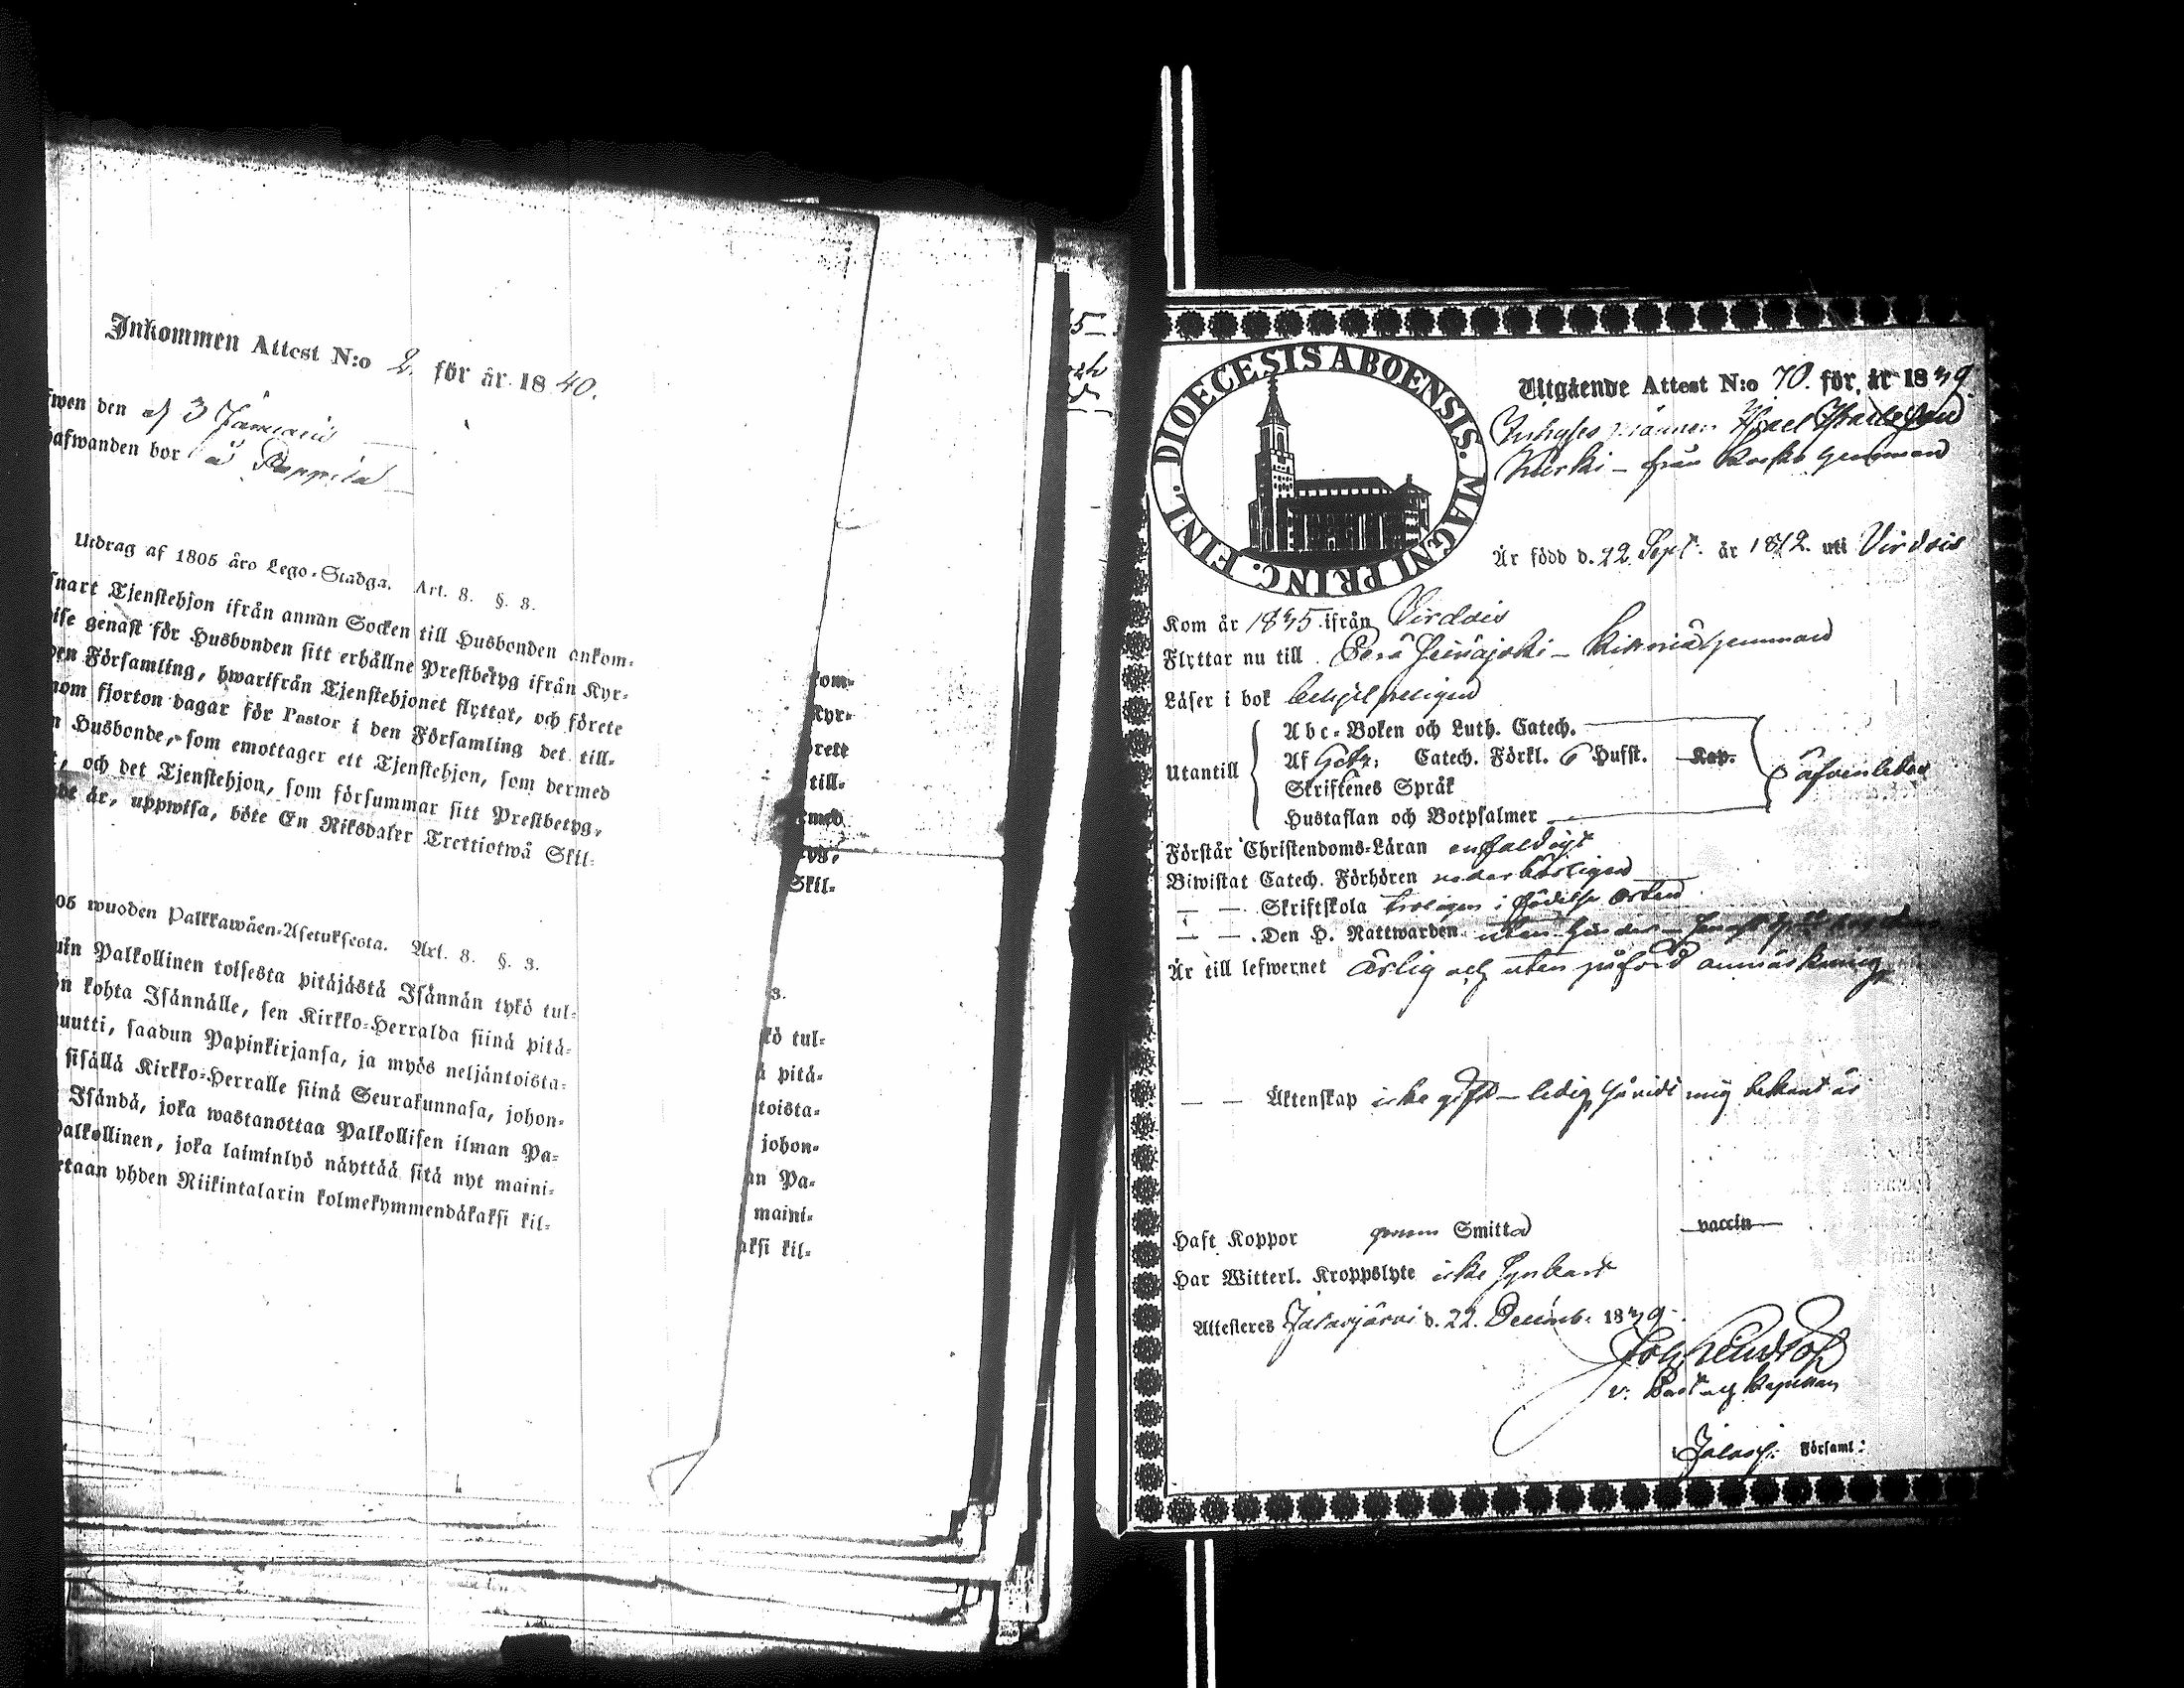 Inkommen Attest N:o 2. för år 1840.
fwen den 3 Januarii
hafwanden bor å
Utdrag af 1805 års Lego-Stadga. Art. 8. §. 3.
snart Tjenstehjon ifrån annan Socken till Husbonden ankom-
genast för Husbonden sitt erhållne Prestbetyg ifrån Kyr-
den Församling, hwarifrån Tjenstehjonet flyttat, och förete
nom fjorton dagar för Pastor i den Församling det till-
n Husbonde, som emottager ett Tjenstehjon, som dermed
, och det Tjenstehjon, som försummar sitt Prestbetyg,
är, uppwisa, böte En Riksdaler Trettiotwå Skil-
05 wuoden Palkkawäen-Asetuksesta. Art. 8. §. 3.
uin Palkollinen toisesta pitäjästä Isännän tykö tul-
n kohta Isännälle, sen Kirkko-Herralda siinä pitä-
uutti, saadun Papinkirjansa, ja myös neljäntoista-
sisällä Kirkko-Herralle siinä Seurakunnasa, johon-
Isändä, joka wastanottaa Palkollisen ilman Pa-
Palkollinen, joka laiminlyö näyttää sitä nyt maini-
etaan yhden Riikintalarin kolmekymmendäkaksi kil-
kom-
Kyr-
rete
till-
rmed
tyg,
Skil-
3.
kö tul-
ä pitä-
toista-
johon-
an Pa-
maini-
aksi kil-
DIOECESIS ABOENSIS. MAGNI PRINC. FINL.
Utgående Attest N:o 70. för år 1839
Inhyses mannen
Kurki – från
Är född d. 22 Sept. år 1812. uti Virdois
Kom år 1835 ifrån Virdois
Flyttar nu till Perä Seinäjoki –
Läser i bok behjelpeligen
Utantill
Abc-Boken och Luth. Catech.
Af Gebz: Catech. Förkl. 6 Hufst. Kap.
Skriftenes Språk
Hustaflan och Botpsalmer
Förstår Christendoms-Läran enfaldigt
Biwistat Catech. Förhören wederbörligen
— — Skriftskola i födelse orten
— — Den H. Nattwarden utan hinder –
Är till lefwernet ärlig och utan påförd anmärkning
— — Äktenskap icke gift – ledig såvidt mig bekant är
Haft Koppor genom Smitta vaccin
Har Witterl. Kroppslyte icke synbart
Attesteres Jalasjärvi d. 22. Decemb. 1839.
Jalasj. Församl: